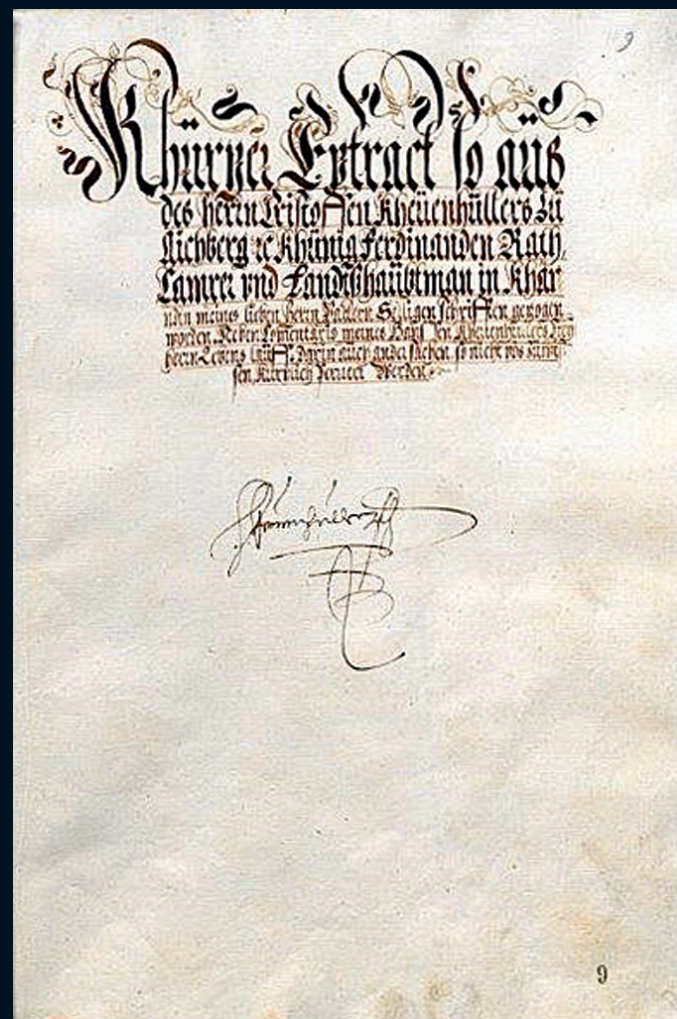 9
Khürzer Extract so aus
des herrn Cristoffen Kheuenhüllers zu
Aichberg ꝛc Khünig Ferdinanden Rath,
Camrer vnd Landtßhaubtman in Khär
nden meines lieben herrn Vattern Seeligen schrifften gezogen
worden. Neben Comentario meines Hannsen Kheuenhüllers
herrn Lebens lauff, darin auch ander sachen so nicht
buch werden
Kheuenhüller
9